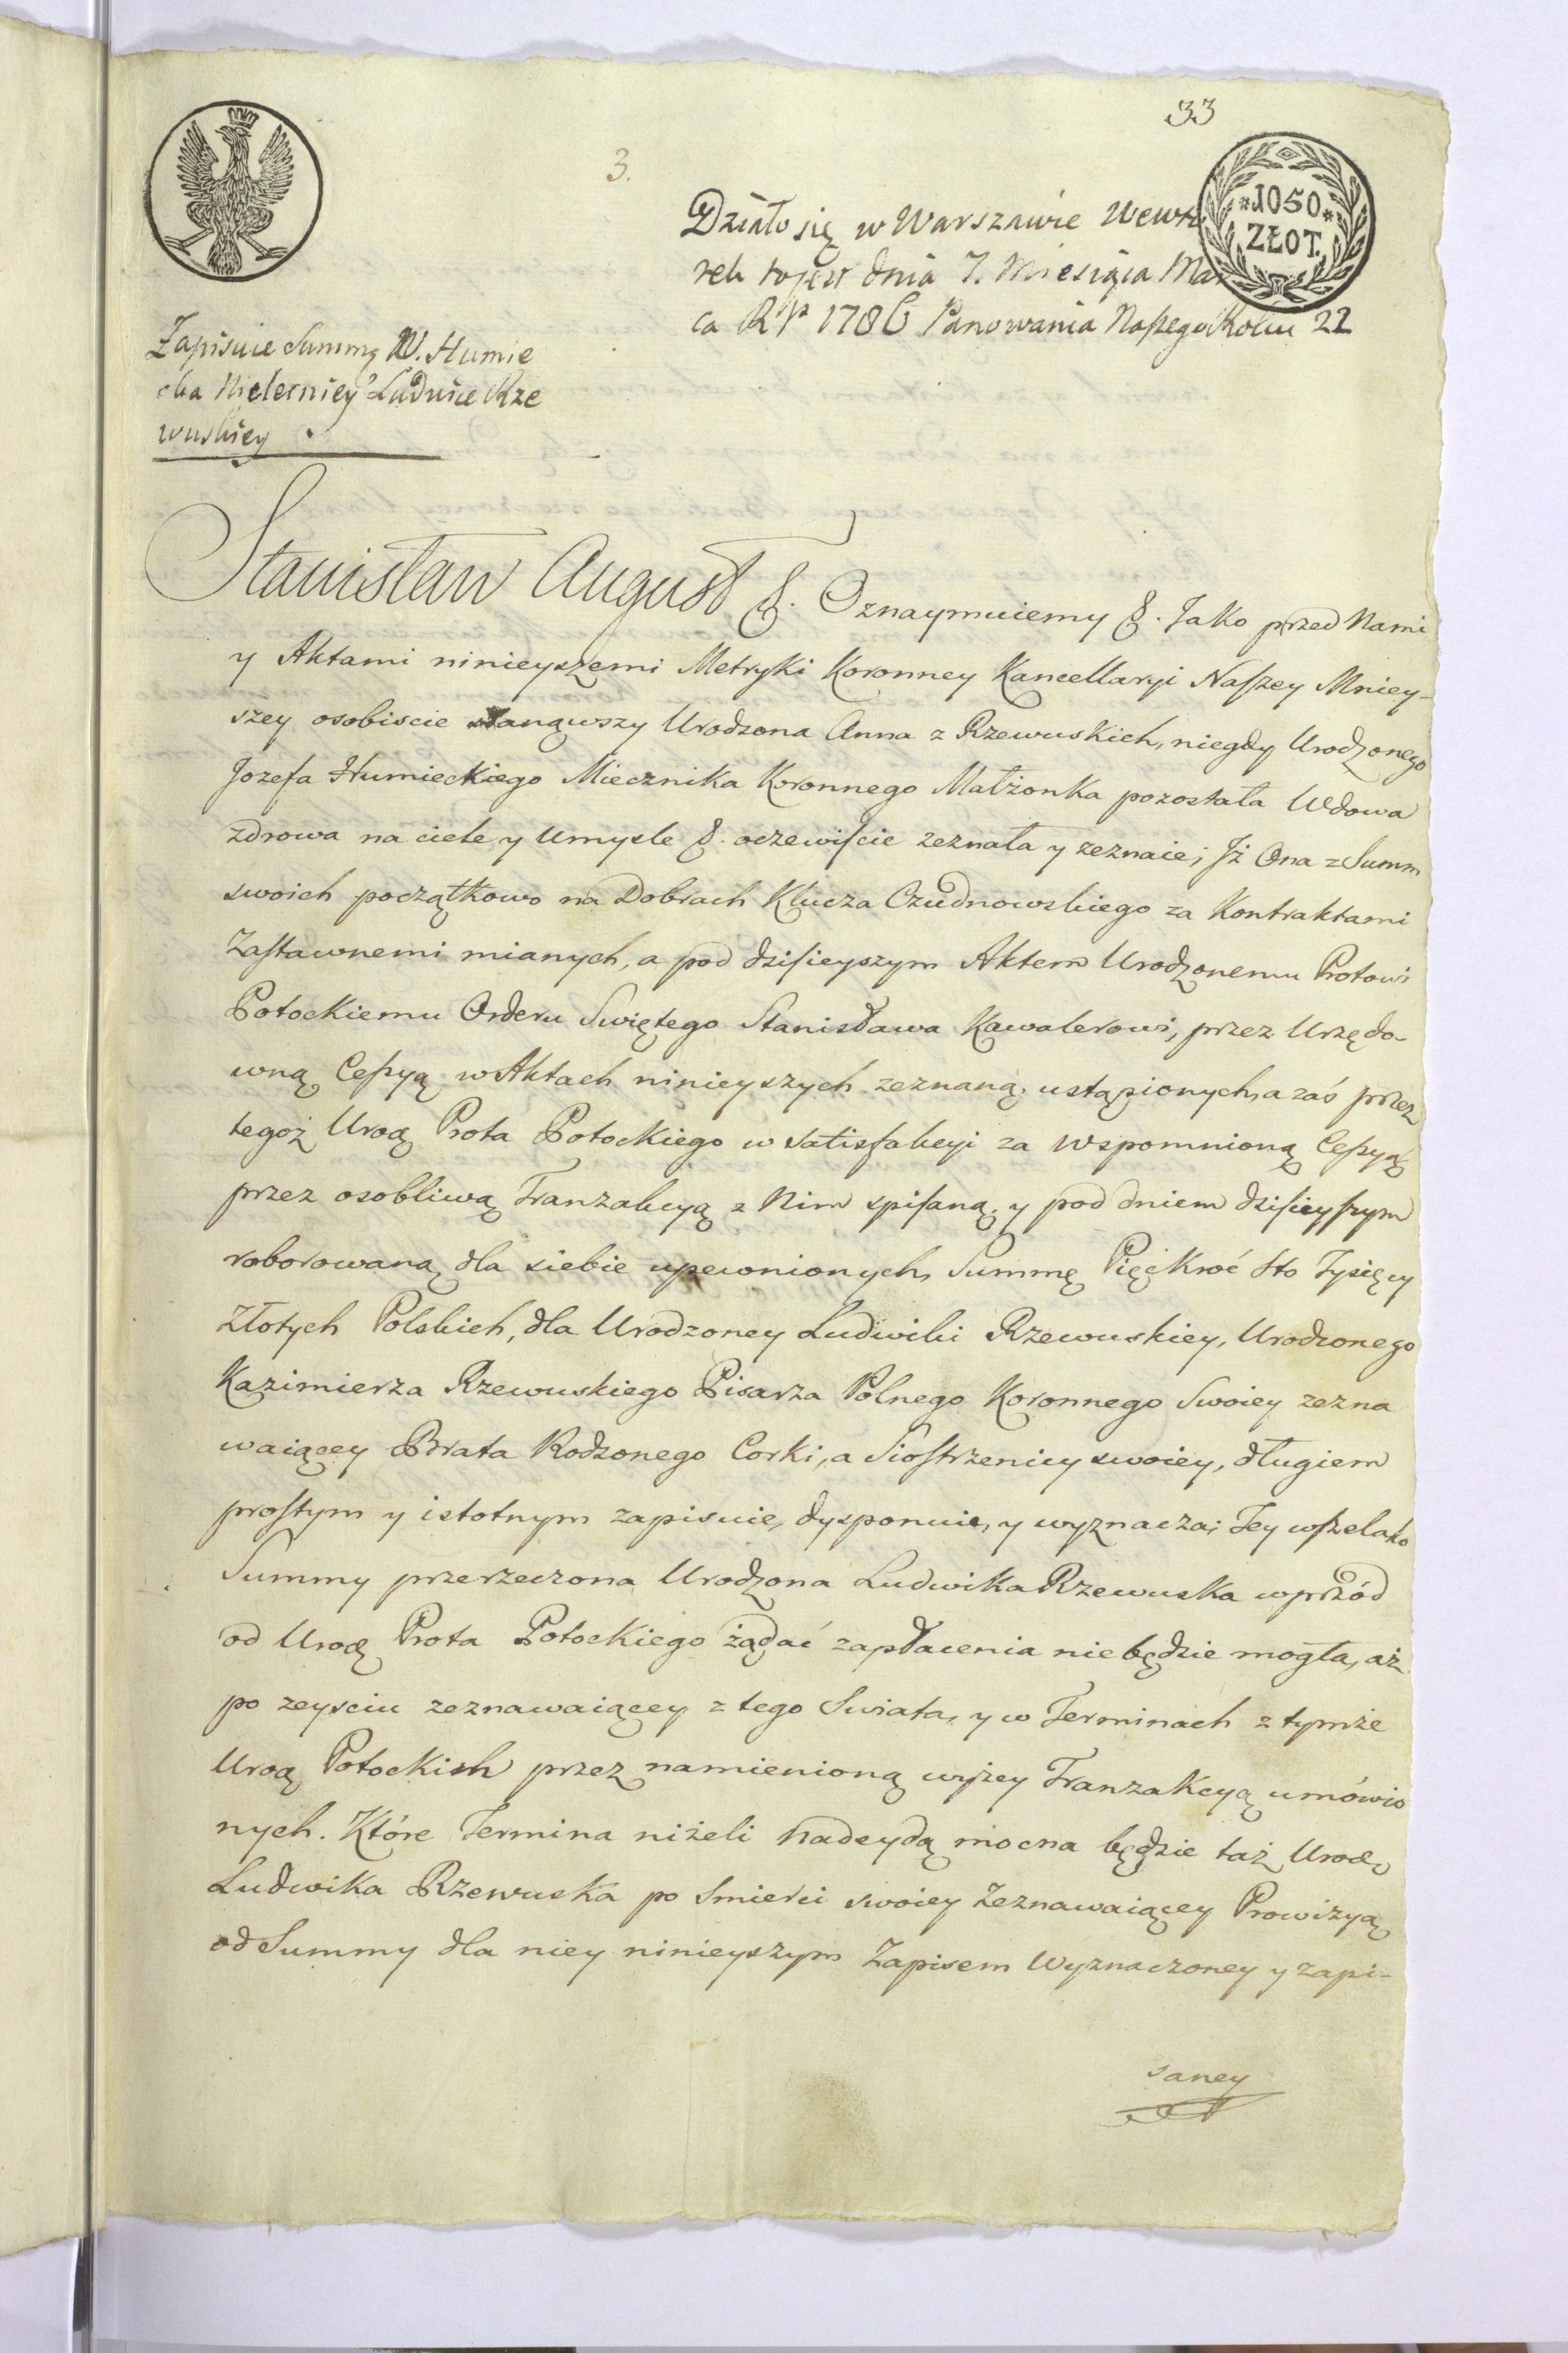 33
3.
*1050*
ZŁOT.
Działo się w Warszawie Wewto
rek to jest dnia 7. Miesiąca Mar
ca R P 1786 Panowania Naszego Roku 22
Zapisuie Summę W. Humie
cka Nielerniey Ludwice Rze
wuskiey
Stanisław August &. Oznaymuiemy &. Jako przed Nami
y Aktami ninieyszemi Metryki Koronney Kancellaryi Naszey Mniey-
szey osobiscie stanąwszy Urodzona Anna z Rzewuskich, niegdy Urodzonego
Jozefa Humieckiego Miecznika Koronnego Małżonka pozostała Wdowa
zdrowa na ciele y Umysle &. oczewiście zeznała y zeznaie; Jż Ona z Summ
swoich początkowo na Dobrach Klucza Czudnowskiego za Kontraktami
Zastawnemi mianych, a pod dzisieyszym Aktem Urodzonemu Protowi
Potockiemu Orderu Swiętego Stanisława Kawalerowi, przez Urzędo-
wną Cessyą w Aktach ninieyszych zeznaną, ustąpionych, a zaś przez
tegoż Urodz Prota Potockiego w satisfakcyi za wspomnioną Cessyą
przez osobliwą Tranzakcyą z Nim spisaną, y pod dniem dzisieyszym
roborowaną dla siebie upewnionych, Summę Pięćkroć sto Tysięcy
Złotych Polskich, dla Urodzoney Ludwiki Rzewuskiey, Urodzonego
Kazimierza Rzewuskiego Pisarza Polnego Koronnego Swoiey zezna
waiącey Brata Rodzonego Corki, a Siostrzenicy swoiey, długiem
prostym y istotnym zapisuie, dysponuie, y wyznacza; Tey wszelako
Summy przerzeczona Urodzona Ludwika Rzewuska wprzód
od Urodz Prota Potockiego żądać zapłacenia nie będzie mogła, aż
po zeysciu zeznawaiącey z tego Swiata, y w Terminach z tymże
Urodz Potockim przez namienioną wyżey Tranzakcyą umówio
nych. Które Termina niżeli nadeydą mocna będzie taż Urodz
Ludwika Rzewuska po Smierci swoiey Zeznawaiącey Prowizyą
od Summy dla niey ninieyszym Zapisem Wyznaczoney y zapi-
saney